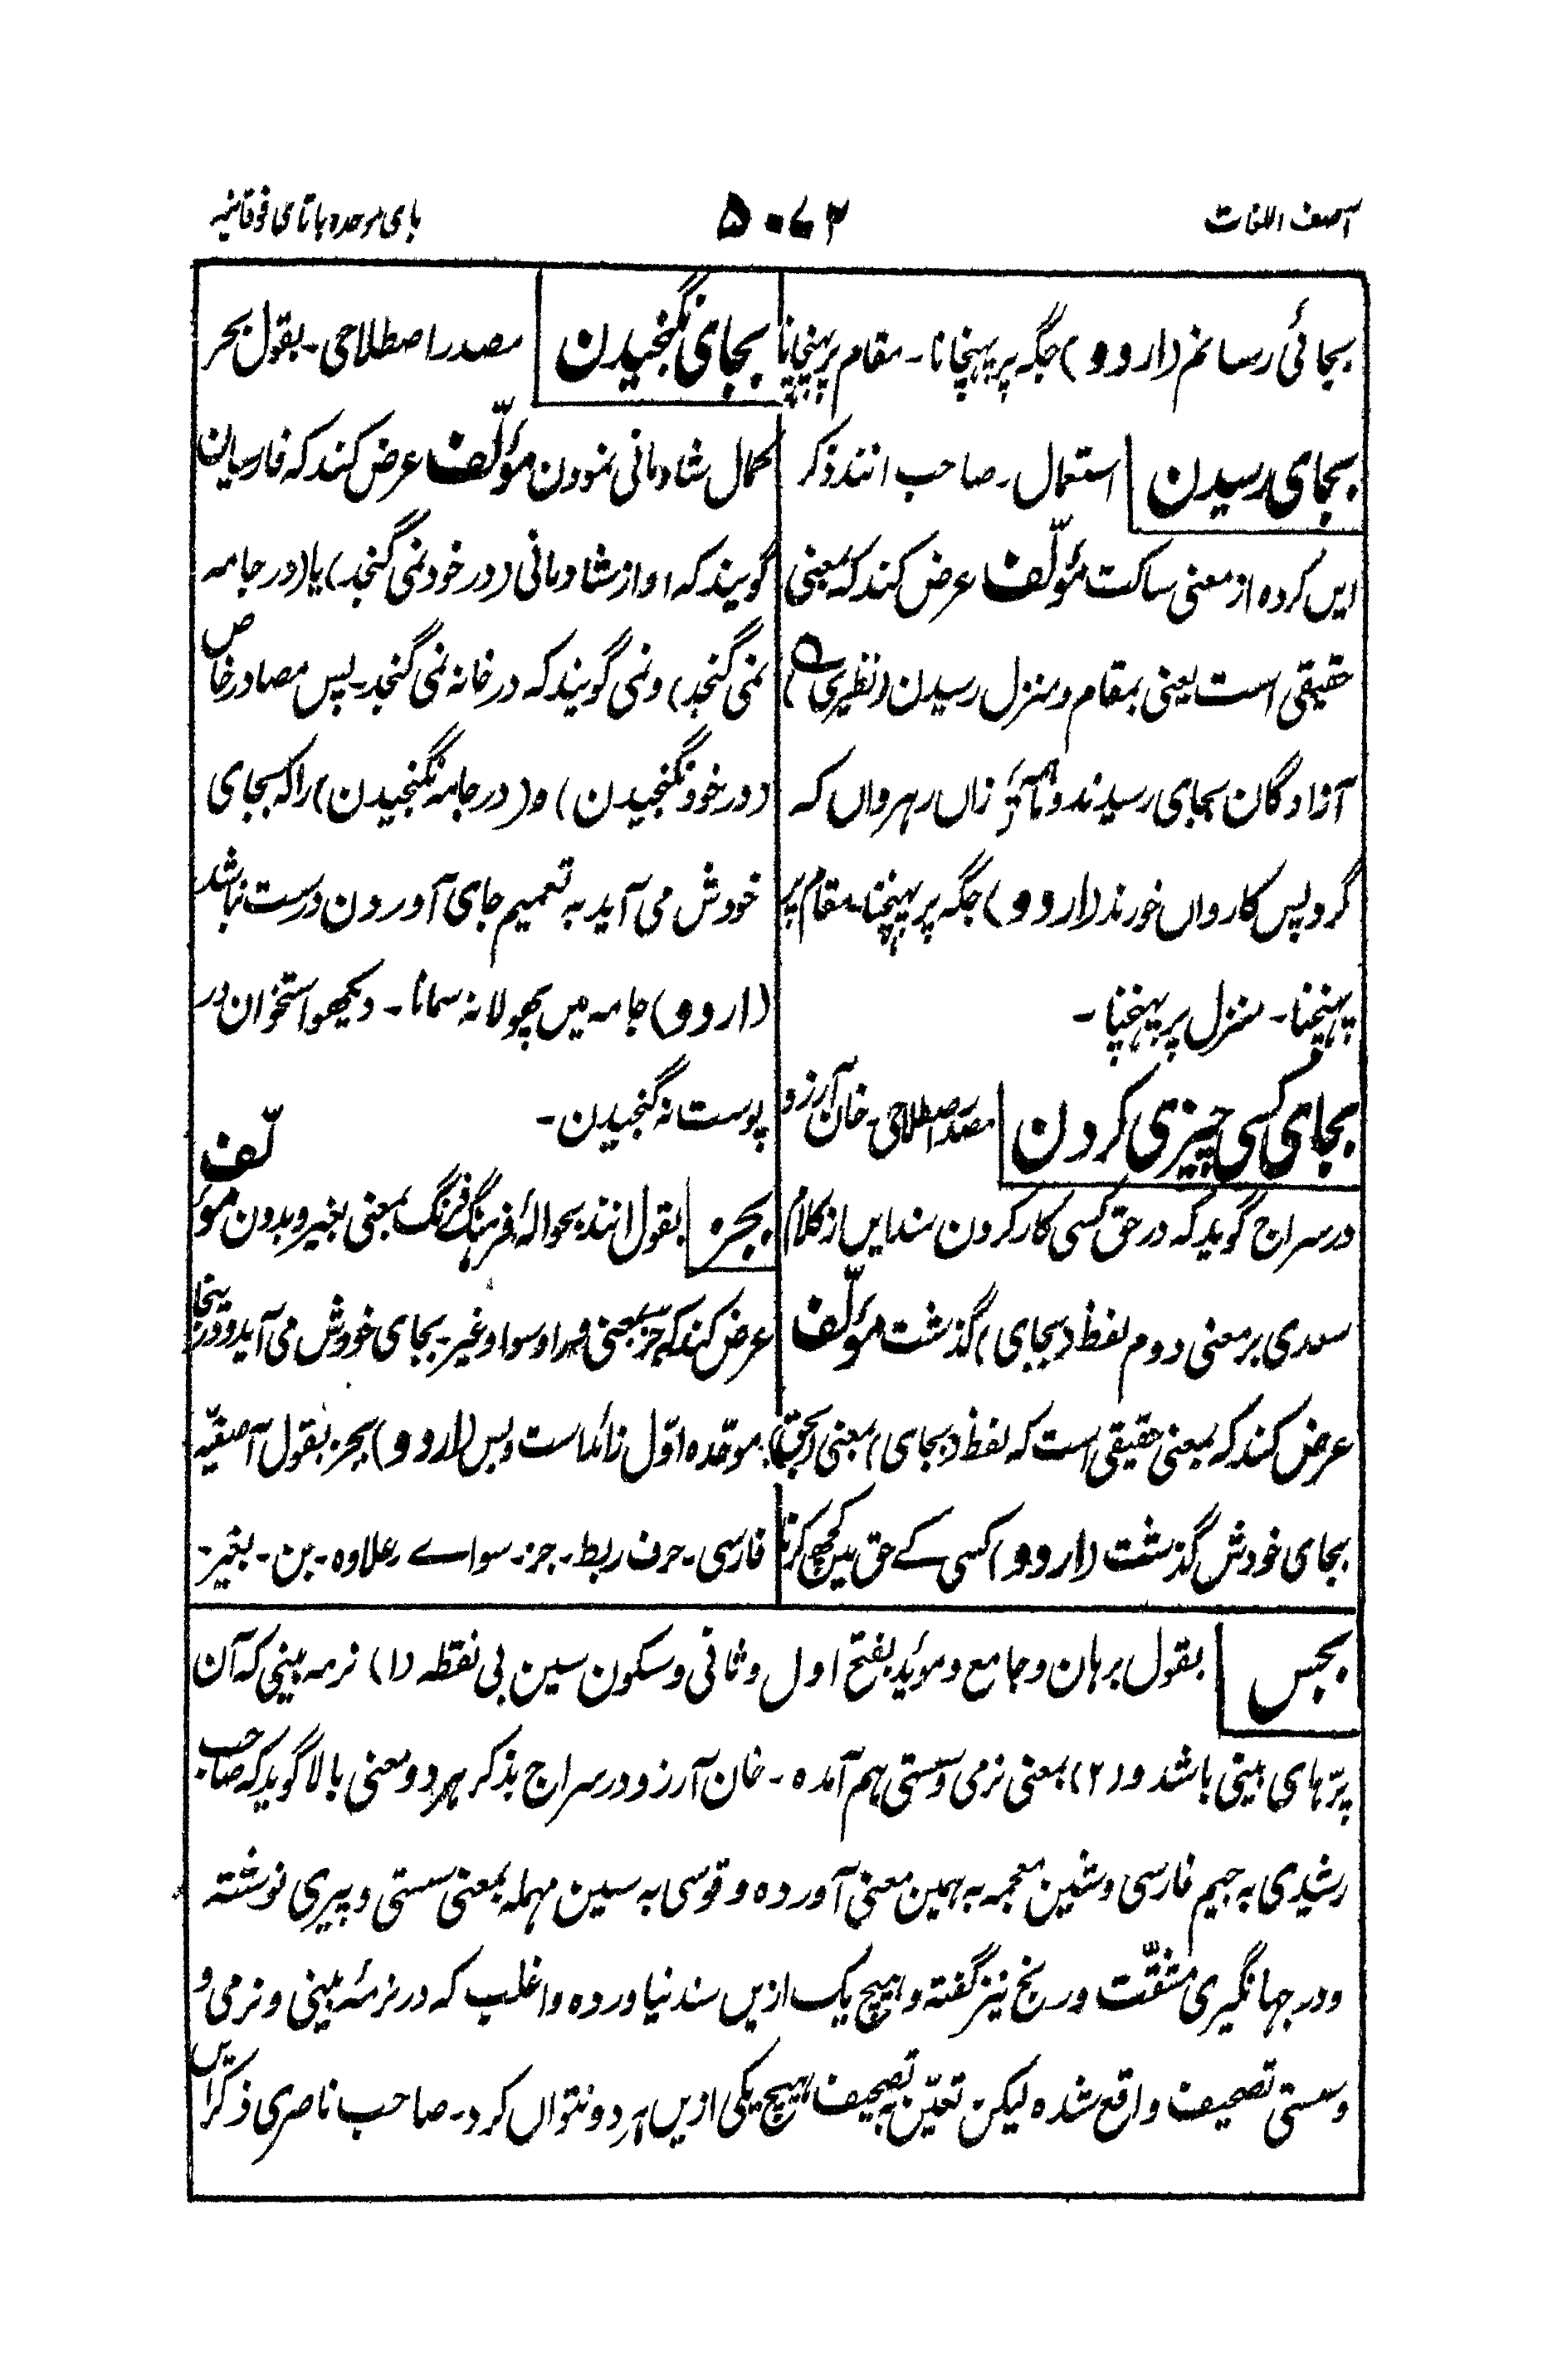 آصف اللغات
۵۰۷۲
بای موحده باتای فوقانیه
بجائی رسانم (اردو) جگہ پر پہنچانا۔ مقام پر پہنچانا
بجای رسیدن استعمال۔ صاحب انند ذکر
این کرده از معنی ساکت مؤلّف عرض کند که بمعنی
حقیقی است یعنی بمقام و منزل رسیدن (نظیری ؎)
آزادگان بجای رسیدند و زان رہرواں که
گرد پس کارواں خورند (اردو) جگہ پر پہنچنا۔ مقام پر
پہنچنا۔ منزل پر پہنچنا۔
بجای کسی چیزی کردن مصدر اصطلاحی۔ خان آرزو
در سراج گوید که در حق کسی کار کردن سند این از کلام
سعدی بر معنی دوم لفظ (بجای) گذشت مؤلّف
عرض کند که بمعنی حقیقی است که لفظ (بجای) بمعنی (بحق)
بجای خودش گذشت (اردو) کسی کے حق میں کچھ کرنا
بجای نگنجیدن مصدر اصطلاحی۔ بقول بحر
کمال شادمانی نمودن مؤلّف عرض کند که فارسیان
گویند که او از شادمانی (در خود نمی گنجد) یا (در جامه
نمی گنجد) و نمی گویند که در خانه نمی گنجد۔ پس مصادر خاص
(در خود نگنجیدن) و (در جامه نگنجیدن) را که بجای
خودش می آید به تعمیم جای آوردن درست نباشد
(اردو) جامہ میں پھولا نہ سمانا۔ دیکھو استخوان در
پوست نه گنجیدن۔
بجز بقول انند بحوالهٔ فرہنگ فرنگ بمعنی بغیر و بدون مؤلّف
عرض کند که جز بمعنی و سوا و غیر۔ بجای خودش می آید و درینجا
موحّده اوّل زائد است و بس (اردو) بجز۔ بقول آصفیّہ
فارسی۔ حرف ربط۔ جز۔ سواے۔ علاوہ۔ بن۔ بغیر۔
بجس بقول برہان و جامع و مؤید بفتح اول و ثانی و سکون سین بی نقطه (۱) نرمه بینی که آن
پرّہای بینی باشد و (۲) بمعنی نرمی و سستی ہم آمده۔ خان آرزو در سراج بذکر ہر دو معنی بالا گوید که صاحب
رشیدی به جیم فارسی و شین معجمه به ہمین معنی آورده و قوسی به سین مہمله بمعنی سستی و پیری نوشته
و در جہانگیری مشقّت و رنج نیز گفته و ہیچ یک ازین سند نیاورده و اغلب که در نرمهٔ بینی و نرمی و
و سستی تصحیف واقع شده لیکن تعیّن تصحیف ہیچ یکی ازین ہر دو نتواں کرد۔ صاحب ناصری ذکر این